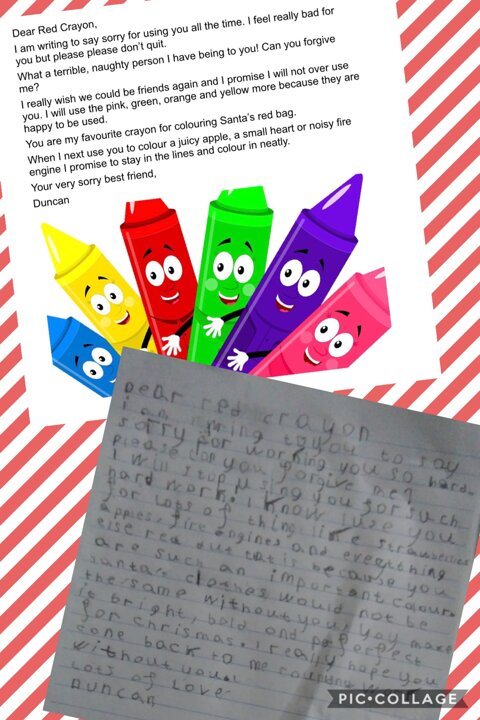 Dear Red Crayon,
I am writing to say sorry for using you all the time. I feel really bad for
you but please please don't quit.
What a terrible, naughty person I have being to you! Can you forgive
me?
I really wish we could be friends again and I promise I will not over use
you. I will use the pink, green, orange and yellow more because they are
happy to be used.
You are my favourite crayon for colouring Santa's red bag.
When I next use you to colour a juicy apple, a small heart or noisy fire
engine I promise to stay in the lines and colour in neatly.
Your very sorry best friend,
Duncan
Dear red crayon
i am to you to say
sorry for working you so hard.
please can you forgive me?
I will stop using you for such
hard work. I know I use you
for lots of thing like strawberries
apples, fire engines and everything
else red but tat is because you
are such an important colour.
santa's clothes would not be
the same without you. you make
it bright, bold and
for chrismas. I really hope you
come back to me
without you.
Lots of Love
Duncan
PIC•COLLAGE